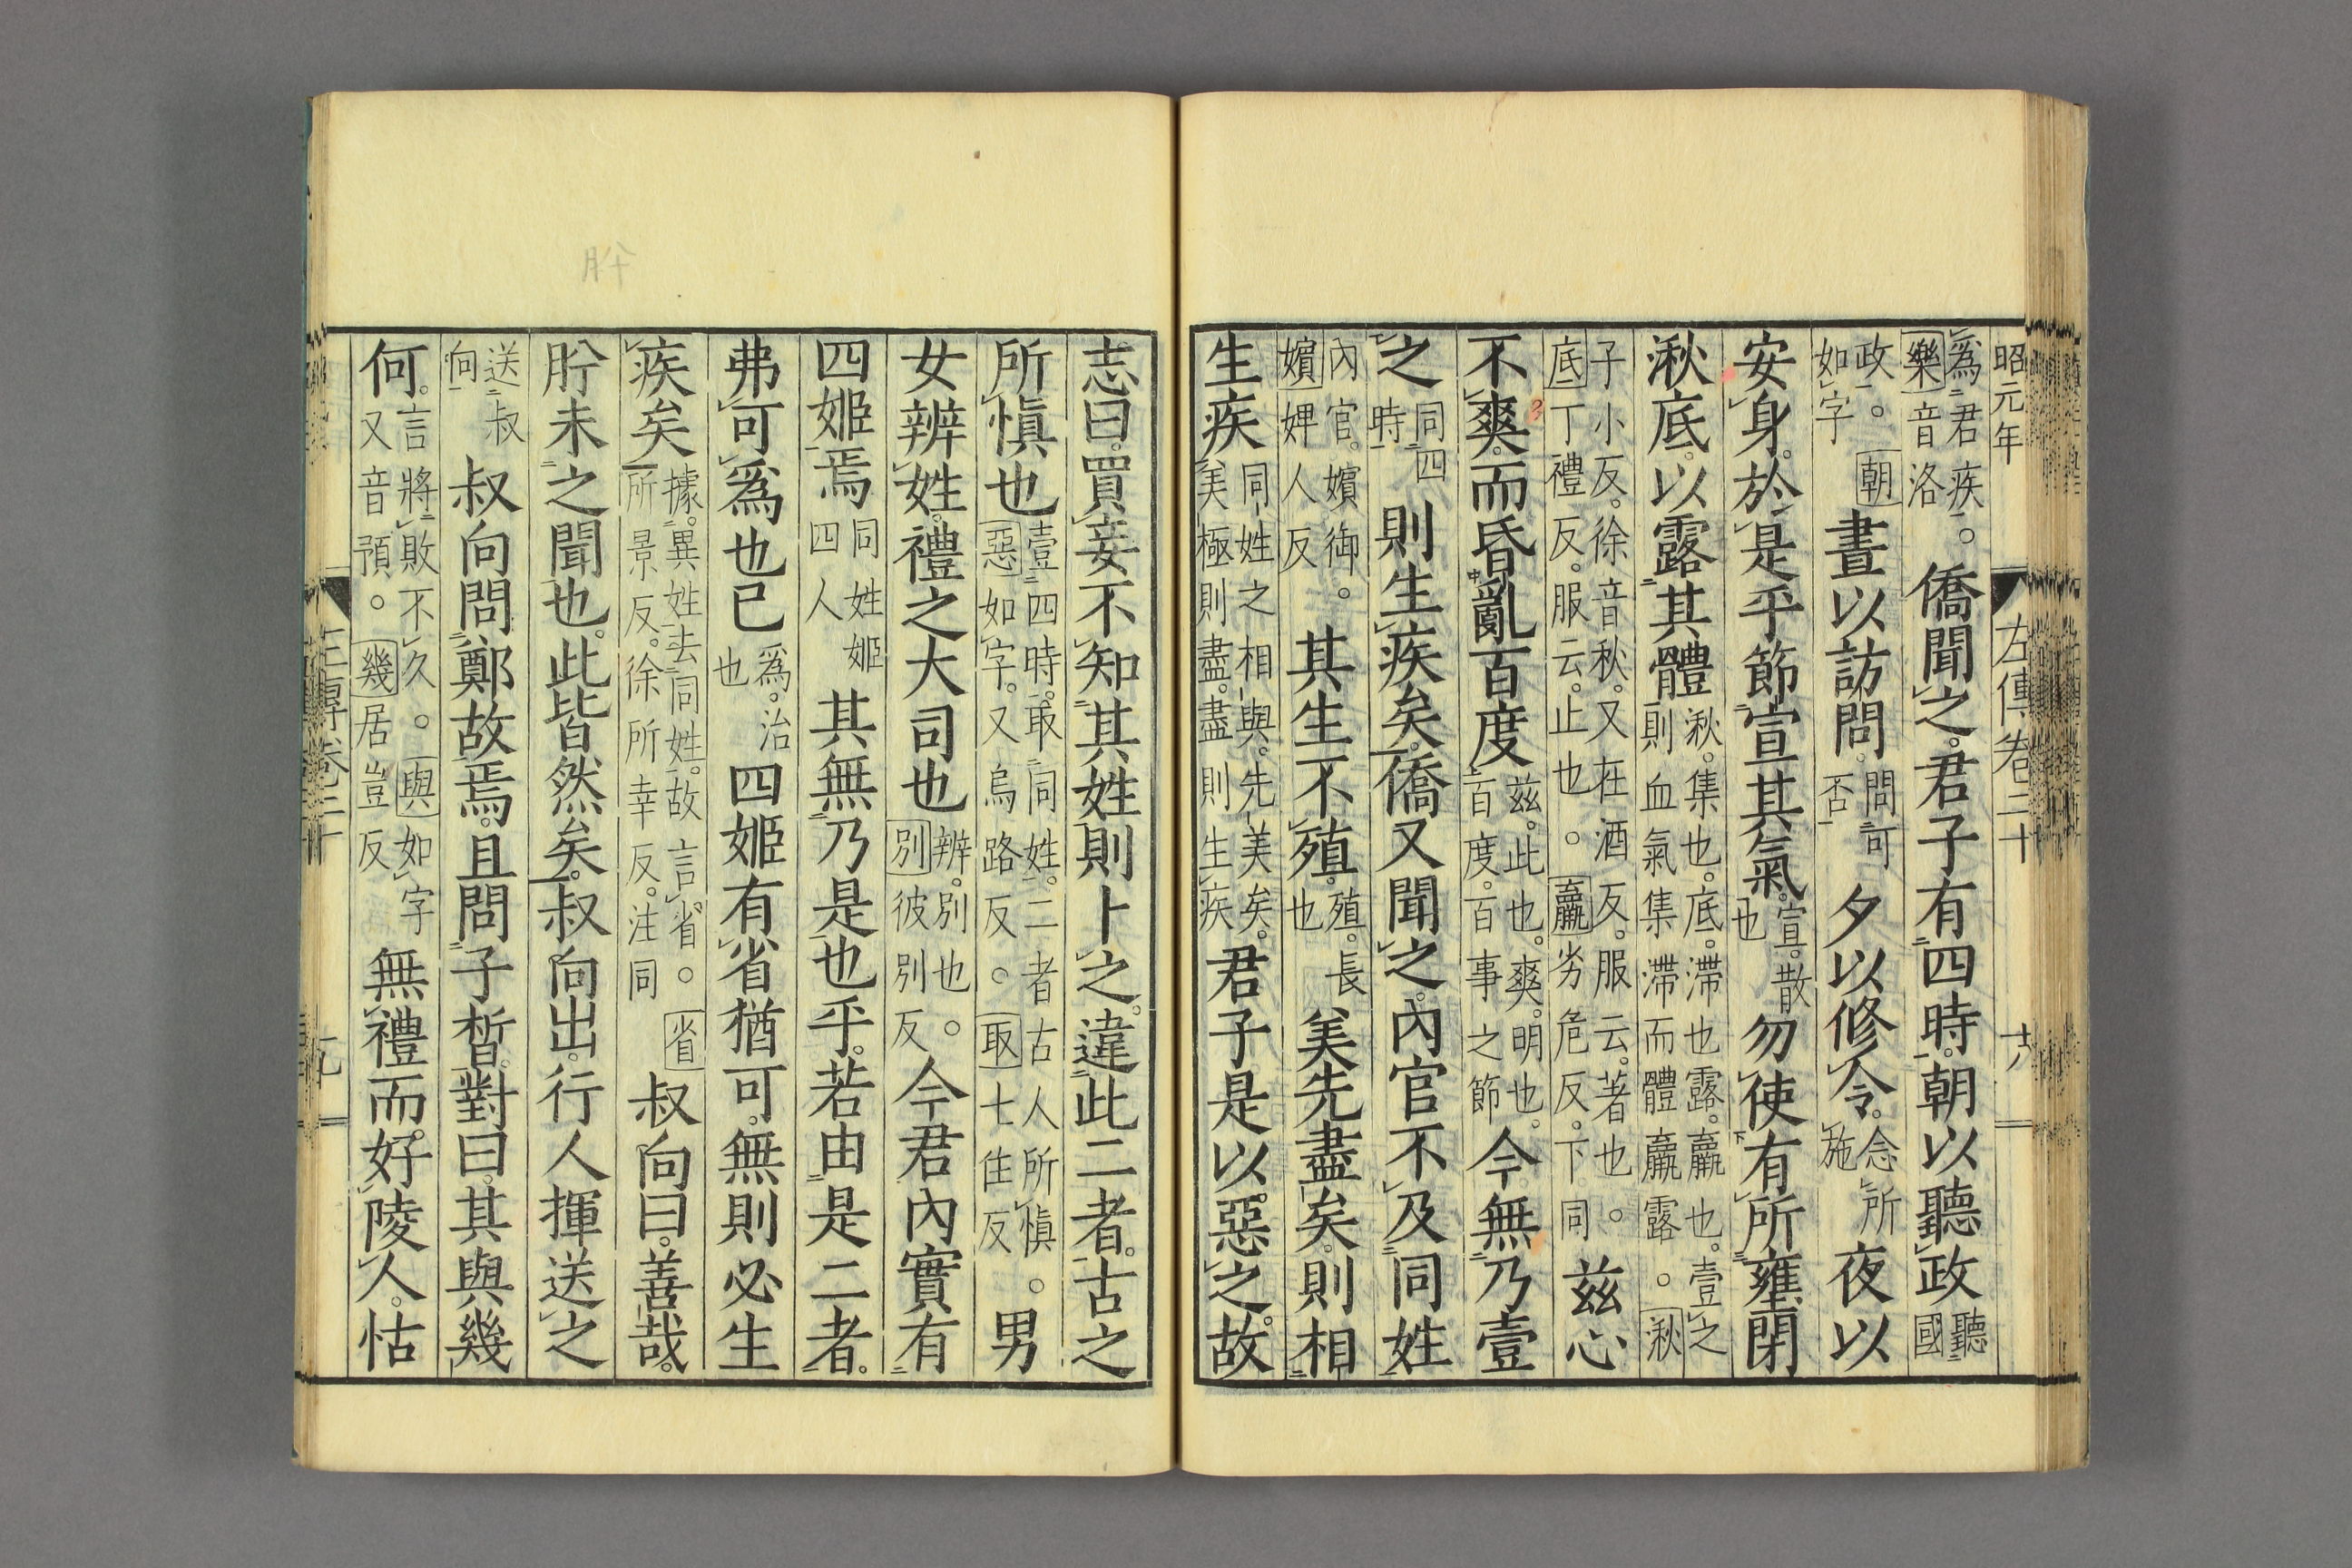 昭元年
左傳卷二十
十八
爲君疾。樂音洛僑聞之。君子有四時。朝以聽政聽國
政。朝如字晝以訪問。問可否夕以修令。念所施夜以
安身。於是乎節宣其氣。宣。散也勿使有所壅閉
湫底。以露其體湫。集也。底。滯也露。羸也。壹之則血氣集滯而體羸露。湫
子小反。徐音秋。又在酒反。服云。著也。底丁禮反。服云。止也。羸劣危反。下同兹心
不爽。而昏亂百度兹。此也。爽。明也。百度。百事之節今無乃壹
之同四時則生疾矣。僑又聞之。內官不及同姓
內官。嬪御。嬪婢人反其生不殖。殖。長也美先盡矣。則相
生疾同姓之相與。先美矣。美極則盡。盡則生疾君子是以惡之。故
志曰。買妾不知其姓則卜之。違此二者。古之
所愼也壹四時。取同姓。二者古人所愼。惡如字。又烏路反。取七住反男
女辨姓。禮之大司也辨。別也。別彼別反今君內實有
四姬焉同姓姬四人其無乃是也乎。若由是二者。
弗可爲也已爲。治也四姬有省猶可。無則必生
疾矣據異姓去同姓。故言省。省所景反。徐所幸反。注同叔向曰。善哉。
肸未之聞也。此皆然矣。叔向出。行人揮送之
送叔向叔向問鄭故焉。且問子晳。對曰。其與幾
何。言將敗不久。與如字又音預。幾居豈反無禮而好陵人。怙